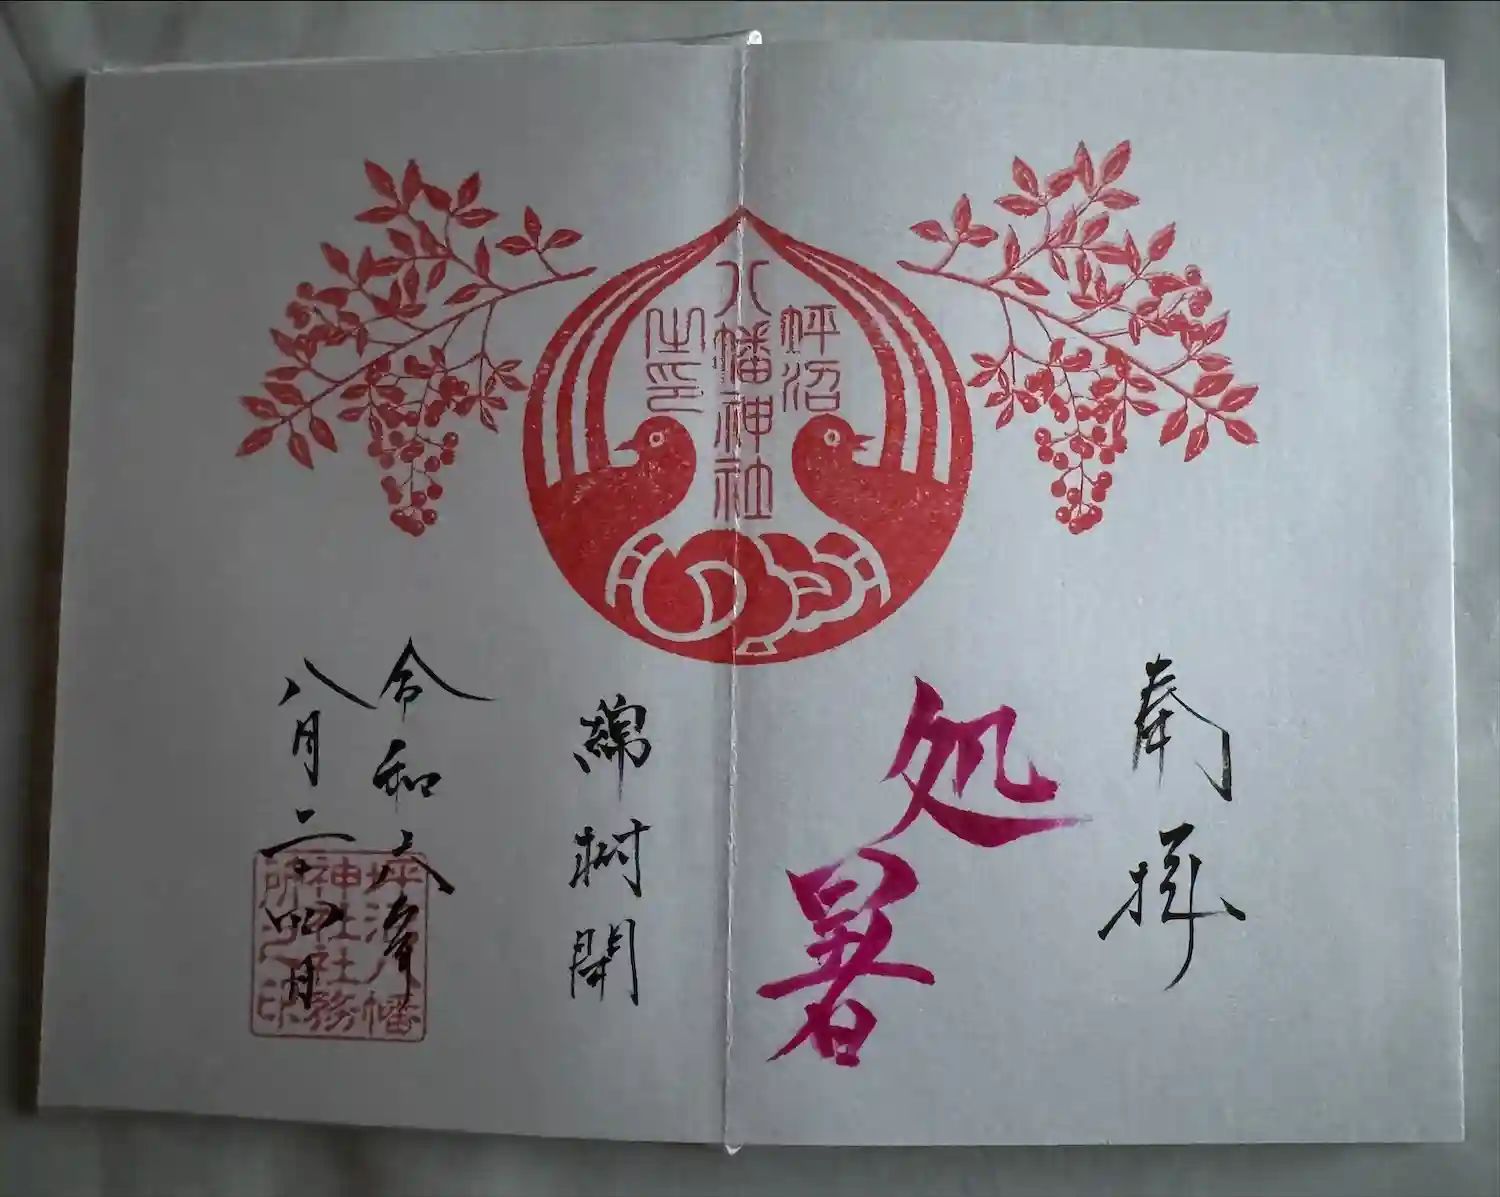 坪沼
八幡神社
之印
奉拝
処暑
綿柎開
令和六年
八月二十四日
坪沼八幡
神社社務
所之印